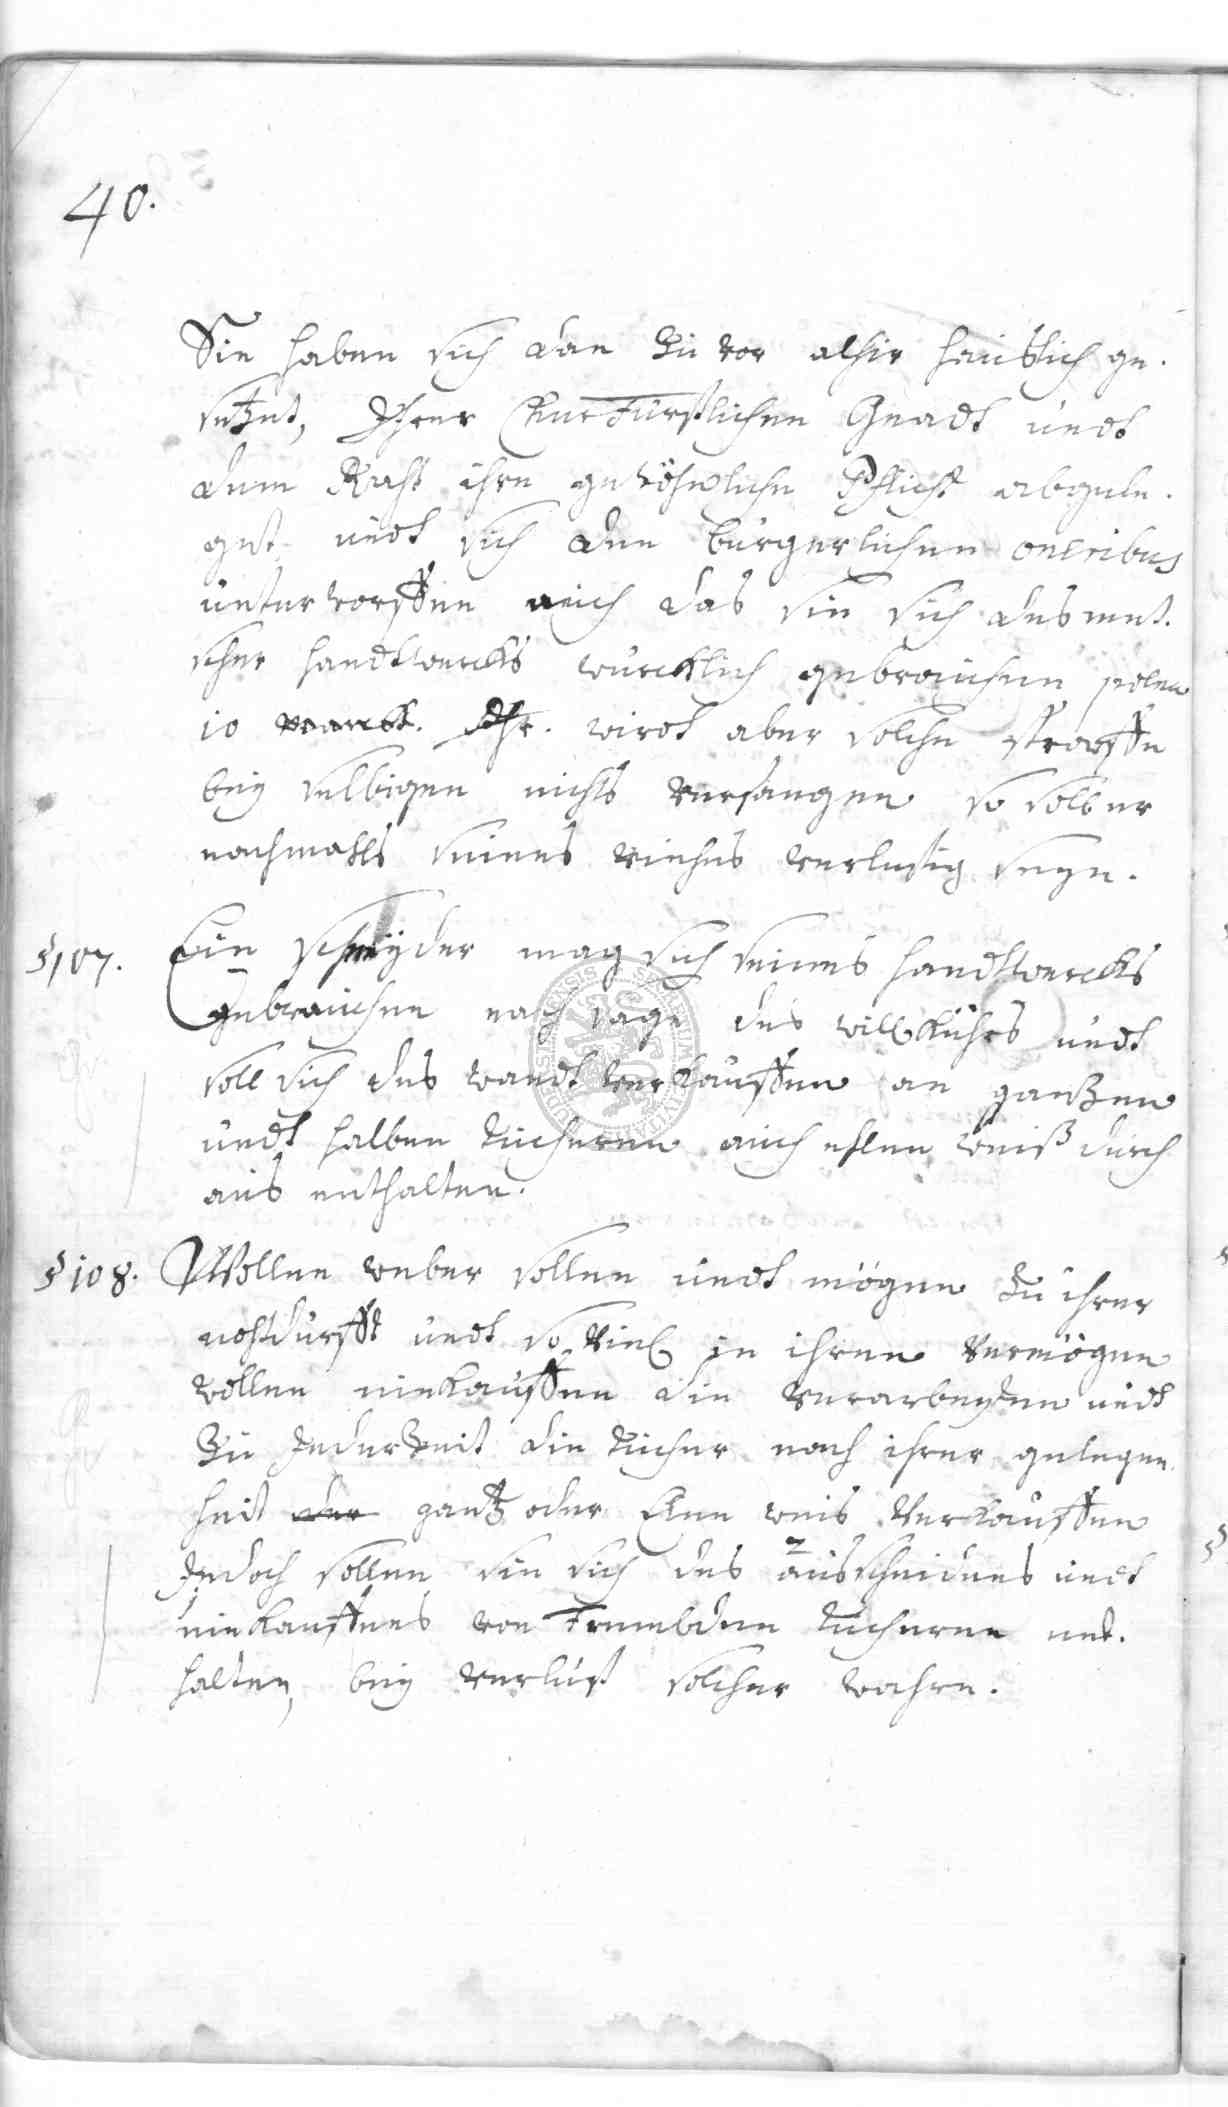 40.
Sie haben sich dan zu vor alhir haußlich ge.
setzet, Ihrer Churfürstlichen Gnadt undt
dem Raht ihre gewöhnliche Pflicht abgele.
get undt sich den bürgerlichen oneribus
unterworffen auch das sie sich des
handtwercks würcklich gebrauchen
10 marck. wirdt aber solche straffe
bey selbigen nichts verfangen so soll er
nachmahls seines viehes verlustig seyn.
§107. Ein schneyder mag sich seines handtwercks
gebrauchen nach sage des willkührs undt
soll sich des wandt verkauffen an gantzen
undt halben tücheren auch ehlen weiß durch
aus enthalten.
§108. Wollen weber sollen undt mögen zu ihrer
nohtdurfft undt so viel in ihren vermögen
wollen einkauffen die verarbeyten undt
zu jederzeit die tücher nach ihrer gelegen
heit der gantz oder Elen weis verkauffen
Jedoch sollen sie sich des ausschneidens undt
einkauffens von frembden tücheren ent.
halten, bey verlust solcher wahre.